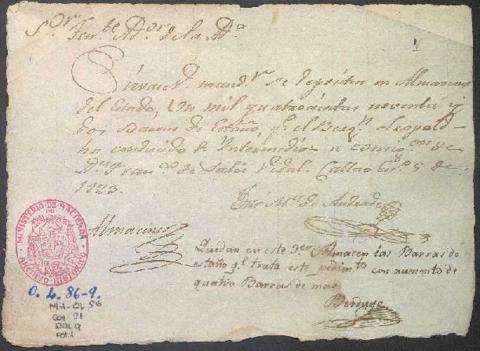 S.or Ten.te Ad.or de la Ad.a
1
Sirvase V. mand.r se depositen en Almacenes
del Estado, Un mil quatrocientas noventa y
dos Barras de Estaño, q.e el Berg.n Leopold
ha conducido de Intermedios a consig.on de
D.n Fran.co de Sales Vidal. Callao
1823.
José M.a de
Almacenes
Quedan en este Almacen las Barras de
estaño q.e trata este pedim.to con aumento de
quatro Barras de mas
MINISTERIO DE HACIENDA
ARCHIVO HISTORICO
O. L. 86-9.
Min-OL 56
Caj. 21
DOC 9
Fol. 1